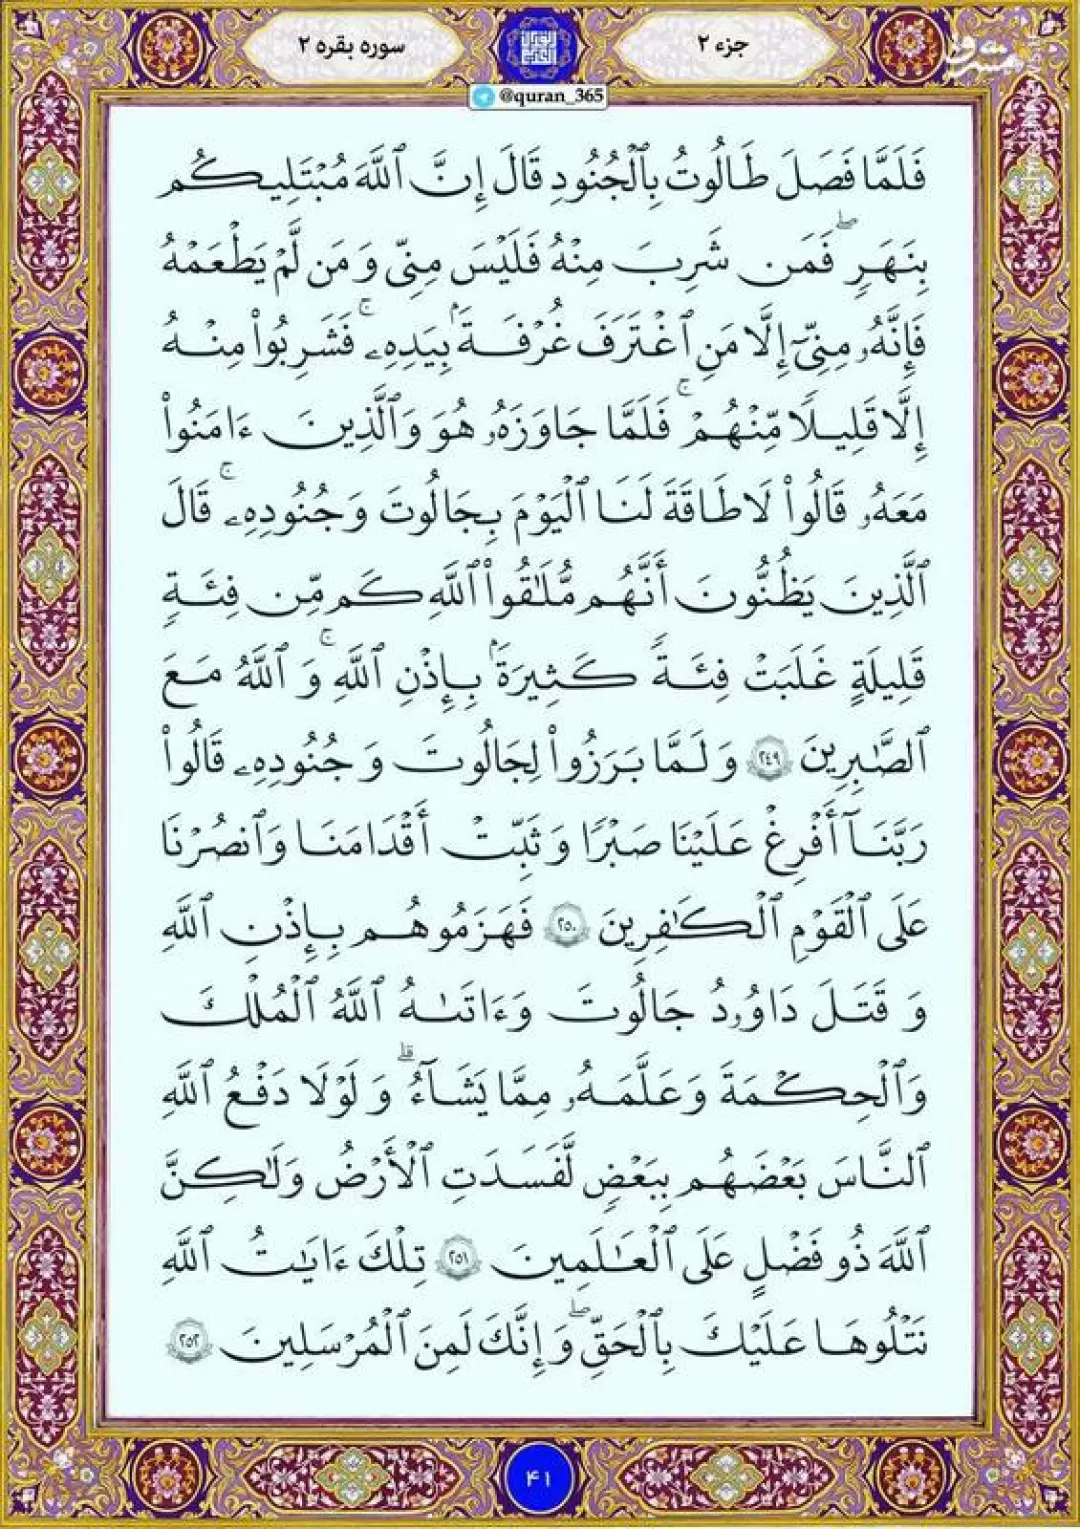 جزء ۲
سوره بقره ۲
@quran_365
فَلَمَّا فَصَلَ طَالُوتُ بِٱلْجُنُودِ قَالَ إِنَّ ٱللَّهَ مُبْتَلِيكُم
بِنَهَرٍ ۖ فَمَن شَرِبَ مِنْهُ فَلَيْسَ مِنِّي وَ مَن لَّمْ يَطْعَمْهُ
فَإِنَّهُۥ مِنِّيٓ إِلَّا مَنِ ٱغْتَرَفَ غُرْفَةَۢ بِيَدِهِۦ ۚ فَشَرِبُوا۟ مِنْهُ
إِلَّا قَلِيلًا مِّنْهُمْ ۚ فَلَمَّا جَاوَزَهُۥ هُوَ وَٱلَّذِينَ ءَامَنُوا۟
مَعَهُۥ قَالُوا۟ لَا طَاقَةَ لَنَا ٱلْيَوْمَ بِجَالُوتَ وَ جُنُودِهِۦ ۚ قَالَ
ٱلَّذِينَ يَظُنُّونَ أَنَّهُم مُّلَٰقُوا۟ ٱللَّهِ كَم مِّن فِئَةٍ
قَلِيلَةٍ غَلَبَتْ فِئَةً كَثِيرَةَۢ بِإِذْنِ ٱللَّهِ ۚ وَ ٱللَّهُ مَعَ
ٱلصَّٰبِرِينَ ٢٤٩ وَ لَمَّا بَرَزُوا۟ لِجَالُوتَ وَ جُنُودِهِۦ قَالُوا۟
رَبَّنَآ أَفْرِغْ عَلَيْنَا صَبْرًا وَ ثَبِّتْ أَقْدَامَنَا وَٱنصُرْنَا
عَلَى ٱلْقَوْمِ ٱلْكَٰفِرِينَ ٢٥٠ فَهَزَمُوهُم بِإِذْنِ ٱللَّهِ
وَ قَتَلَ دَاوُۥدُ جَالُوتَ وَءَاتَىٰهُ ٱللَّهُ ٱلْمُلْكَ
وَٱلْحِكْمَةَ وَعَلَّمَهُۥ مِمَّا يَشَآءُ ۗ وَ لَوْلَا دَفْعُ ٱللَّهِ
ٱلنَّاسَ بَعْضَهُم بِبَعْضٍ لَّفَسَدَتِ ٱلْأَرْضُ وَلَٰكِنَّ
ٱللَّهَ ذُو فَضْلٍ عَلَى ٱلْعَٰلَمِينَ ٢٥١ تِلْكَ ءَايَٰتُ ٱللَّهِ
نَتْلُوهَا عَلَيْكَ بِٱلْحَقِّ ۖ وَ إِنَّكَ لَمِنَ ٱلْمُرْسَلِينَ ٢٥٢
۴۱